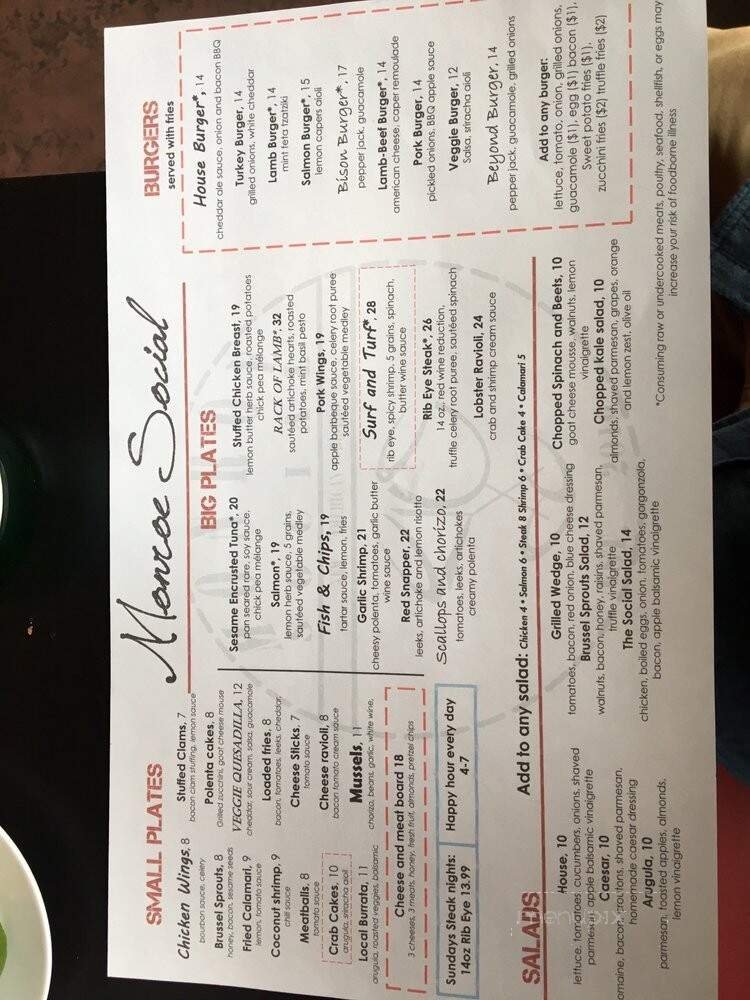 Monroe Social
SMALL PLATES
Chicken Wings, 8
bourbon sauce, celery
Brussel Sprouts, 8
honey, bacon, sesame seeds
Fried Calamari, 9
lemon, tomato sauce
Coconut shrimp, 9
chili sauce
Meatballs, 8
tomato sauce
Crab Cakes, 10
arugula, sriracha aioli
Local Burrata, 11
arugula, roasted veggies, balsamic
Stuffed Clams, 7
bacon clam stuffing, lemon sauce
Polenta cakes, 8
Grilled zucchini, goat cheese mouse
VEGGIE QUESADILLA, 12
cheddar, sour cream, salsa, guacamole
Loaded fries, 8
bacon, tomatoes, leeks, cheddar,
Cheese Sticks, 7
tomato sauce
Cheese ravioli, 8
bacon tomato cream sauce
Mussels, 11
chorizo, beans, garlic, white wine,
Cheese and meat board 18
3 cheeses, 3 meats, honey, fresh fruit, almonds, pretzel chips
Sundays Steak nights:
14oz Rib Eye 13.99
Happy hour every day
4-7
BIG PLATES
Sesame Encrusted Tuna*, 20
pan seared rare, soy sauce,
chick pea mélange
Salmon*, 19
lemon herb sauce, 5 grains,
sautéed vegetable medley
Fish & Chips, 19
tartar sauce, lemon, fries
Garlic Shrimp, 21
cheesy polenta, tomatoes, garlic butter
wine sauce
Red Snapper, 22
leeks, artichoke and lemon risotto
Scallops and chorizo, 22
tomatoes, leeks, artichokes
creamy polenta
Stuffed Chicken Breast, 19
lemon butter herb sauce, roasted potatoes
chick pea mélange
RACK OF LAMB*, 32
sautéed artichoke hearts, roasted
potatoes, mint basil pesto
Pork Wings, 19
apple barbeque sauce, celery root puree
sautéed vegetable medley
Surf and Turf*, 28
rib eye, spicy shrimp, 5 grains, spinach,
butter wine sauce
Rib Eye Steak*, 26
14 oz., red wine reduction,
truffle celery root puree, sautéed spinach
Lobster Ravioli, 24
crab and shrimp cream sauce
BURGERS
served with fries
House Burger*, 14
cheddar ale sauce, onion and bacon BBQ
Turkey Burger, 14
grilled onions, white cheddar
Lamb Burger*, 14
mint feta tzatziki
Salmon Burger*, 15
lemon capers aioli
Bison Burger*, 17
pepper jack, guacamole
Lamb-Beef Burger*, 14
american cheese, caper remoulade
Pork Burger, 14
pickled onions, BBQ apple sauce
Veggie Burger, 12
Salsa, sriracha aioli
Beyond Burger, 14
pepper jack, guacamole, grilled onions
Add to any burger:
lettuce, tomato, onion, grilled onions,
guacamole ($1), egg ($1) bacon ($1),
Sweet potato fries ($1),
zucchini fries ($2) truffle fries ($2)
SALADS
Add to any salad: Chicken 4 • Salmon 6 • Steak 8 Shrimp 6 • Crab Cake 4 • Calamari 5
House, 10
lettuce, tomatoes, cucumbers, onions, shaved
parmesan, apple balsamic vinaigrette
Caesar, 10
romaine, bacon, croutons, shaved parmesan,
homemade caesar dressing
Arugula, 10
parmesan, toasted apples, almonds,
lemon vinaigrette
Grilled Wedge, 10
tomatoes, bacon, red onion, blue cheese dressing
Brussel Sprouts Salad, 12
walnuts, bacon, honey, raisins, shaved parmesan,
truffle vinaigrette
The Social Salad, 14
chicken, boiled eggs, onion, tomatoes, gorgonzola,
bacon, apple balsamic vinaigrette
Chopped Spinach and Beets, 10
goat cheese mousse, walnuts, lemon
vinaigrette
Chopped kale salad, 10
almonds, shaved parmesan, grapes, orange
and lemon zest, olive oil
*Consuming raw or undercooked meats, poultry, seafood, shellfish, or eggs may
increase your risk of foodborne illness